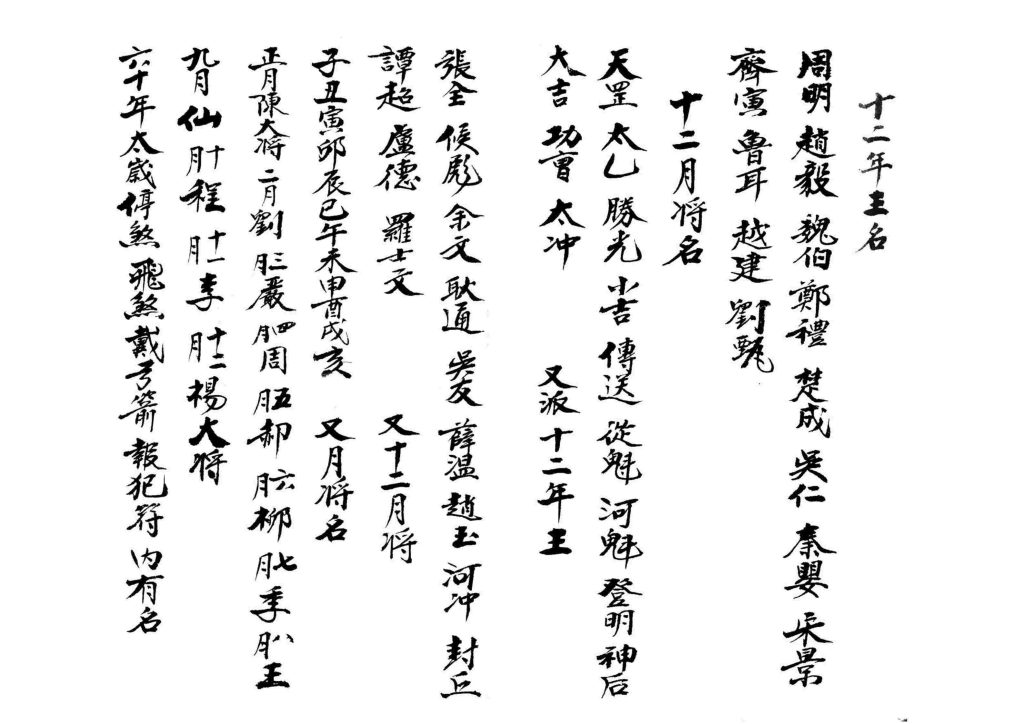 十二年王名
周明 趙毅 魏伯 鄭禮 楚成 吳仁 秦嬰 宋景
齊寅 魯耳 越建 劉甄
十二月将名
天罡 太乙 勝光 小吉 傳送 從魁 河魁 登明 神后
大吉 功曹 太冲 又派十二年王
張全 侯彪 余文 耿通 吳友 薛温 趙玉 河冲 封丘
譚超 盧德 羅士文 又十二月将
子丑寅卯辰巳午未申酉戌亥 又月将名
正月陳大将 二月劉 三月嚴 四月周 五月郝 六月柳 七月季 八月王
九月仙 十月程 十一月李 十二月楊大将
六十年太歲停煞飛煞戴弓箭報犯符内有名